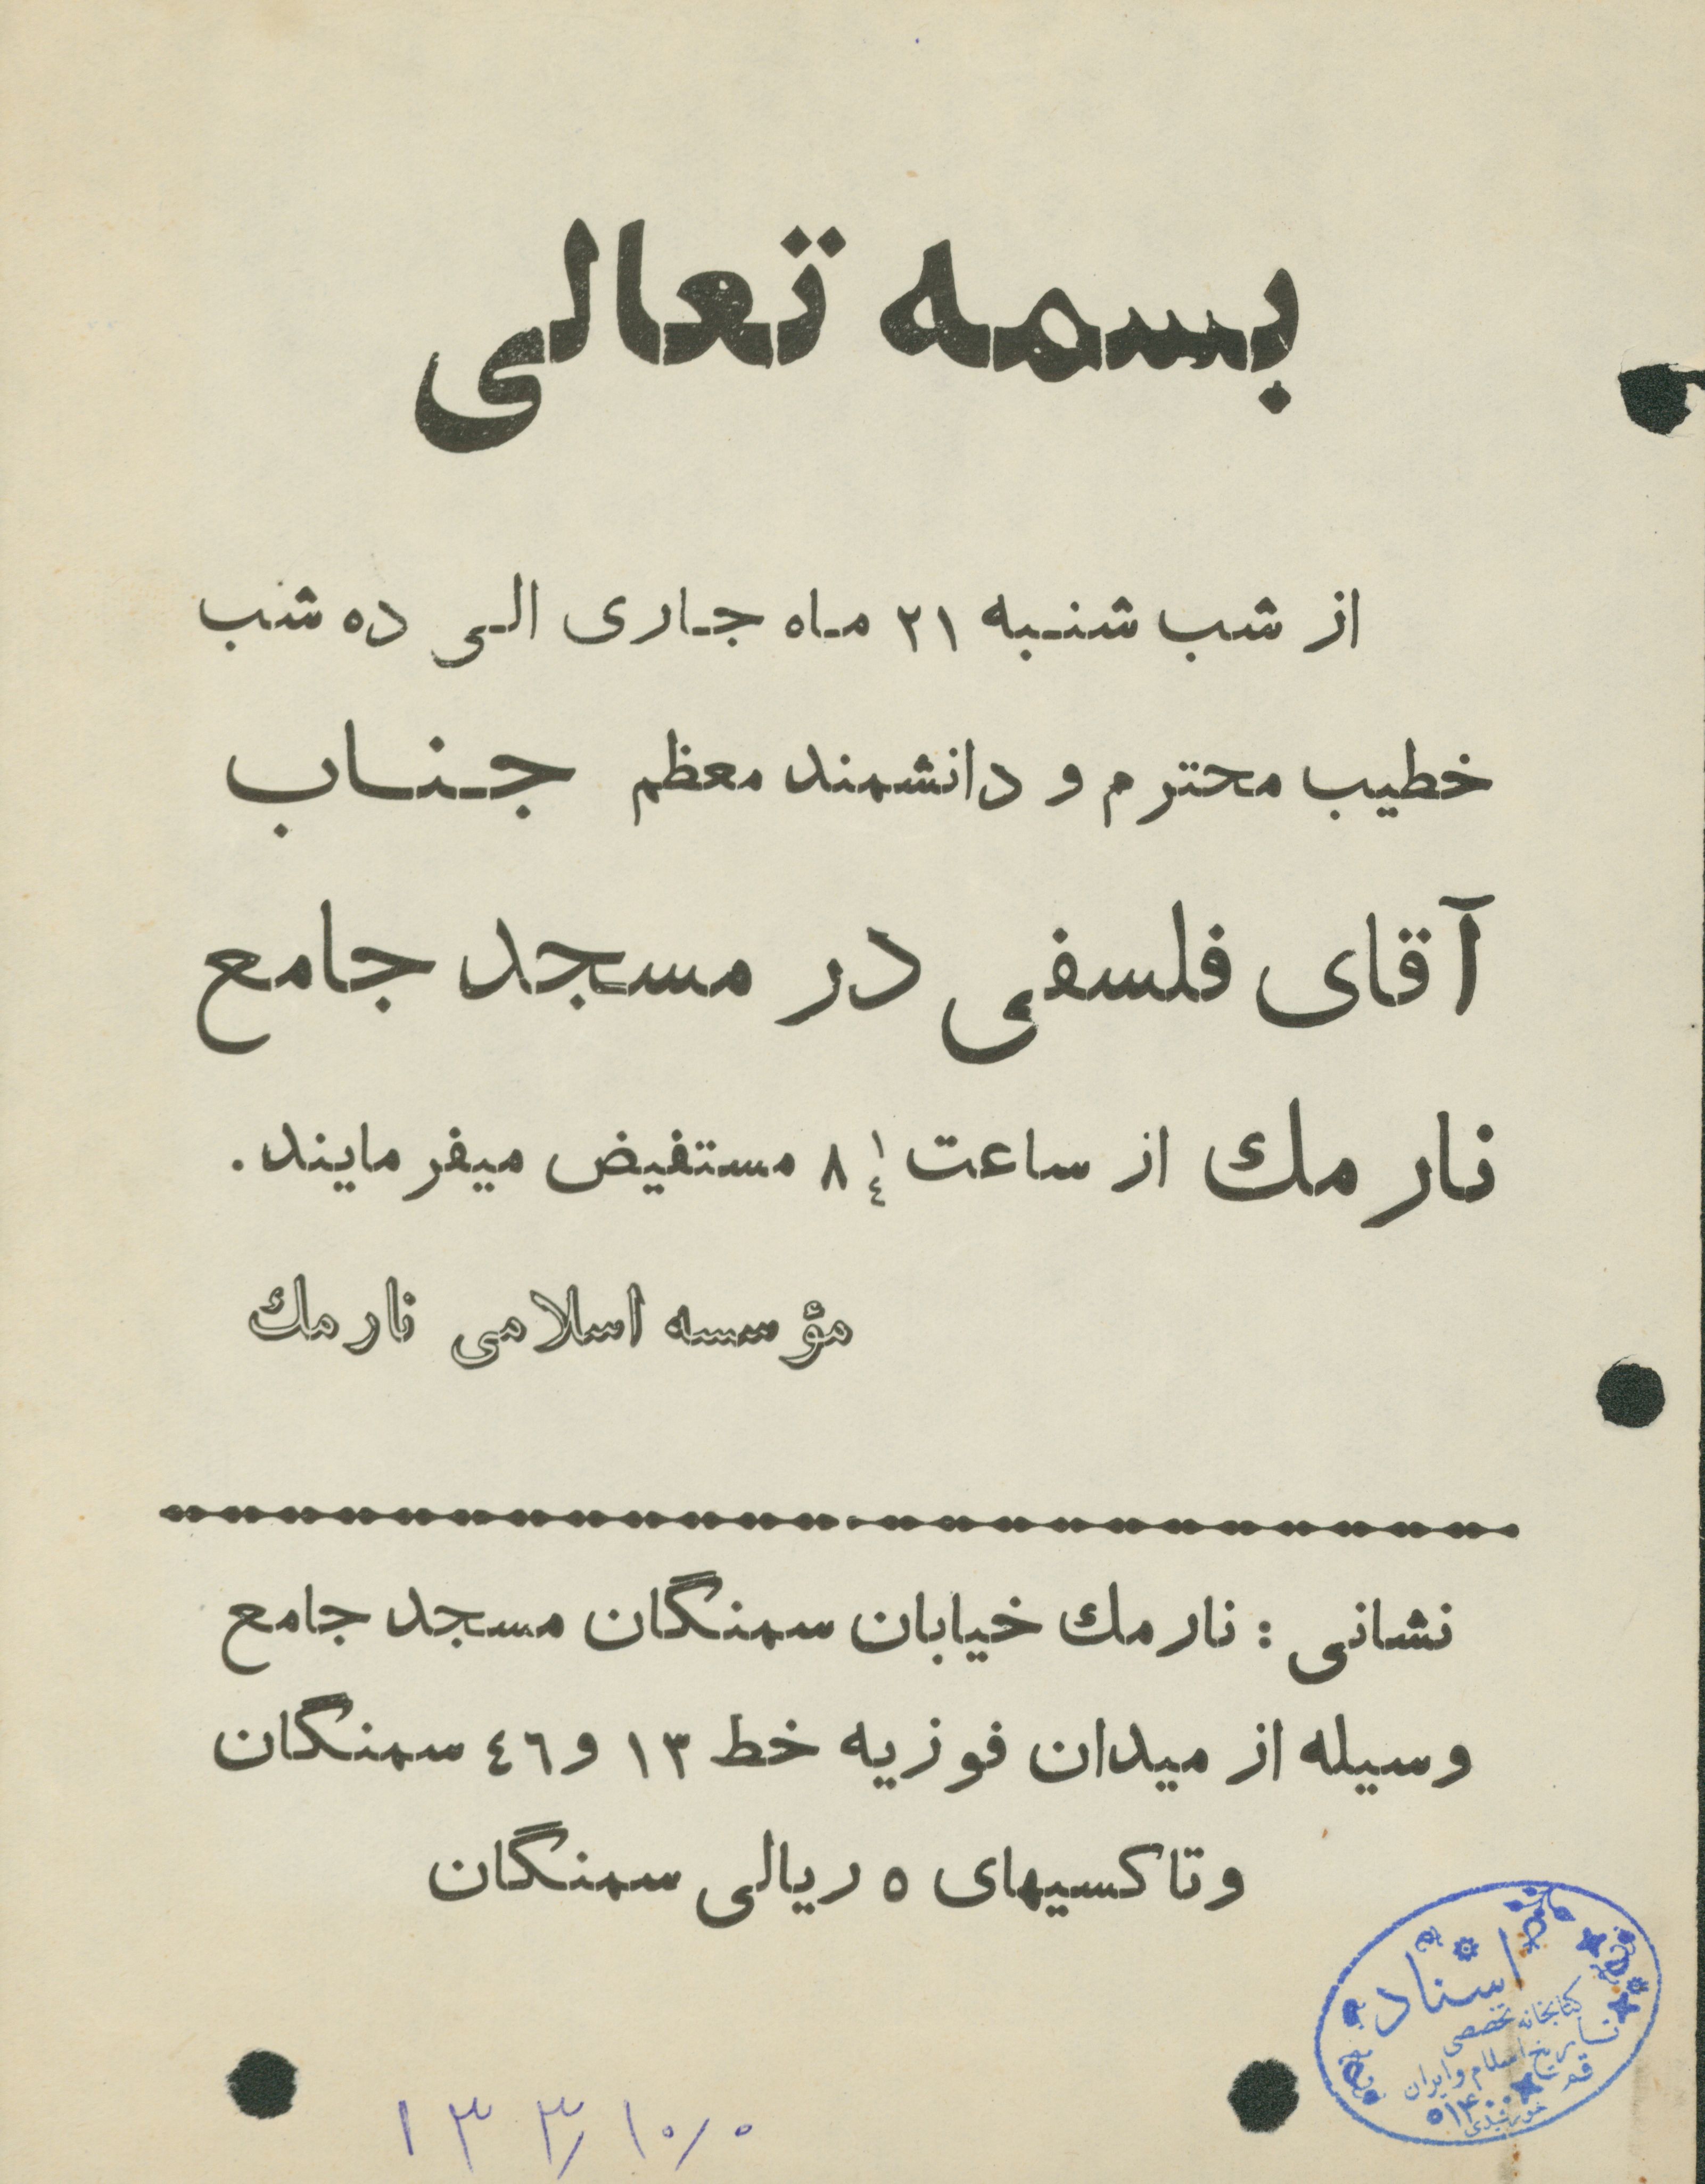 بسمه تعالی
از شب شنبه ۲۱ ماه جاری الی ده شب
خطیب محترم و دانشمند معظم جناب
آقای فلسفی در مسجد جامع
نارمك از ساعت ۸ ۱/٤ مستفیض میفرمایند.
مؤسسه اسلامی نارمك
نشانی : نارمك خیابان سمنگان مسجد جامع
وسیله از میدان فوزیه خط ۱۳ و ٤٦ سمنگان
وتاکسیهای ٥ ریالی سمنگان
اسناد
کتابخانه تخصصی
تاریخ اسلام و ایران
قم